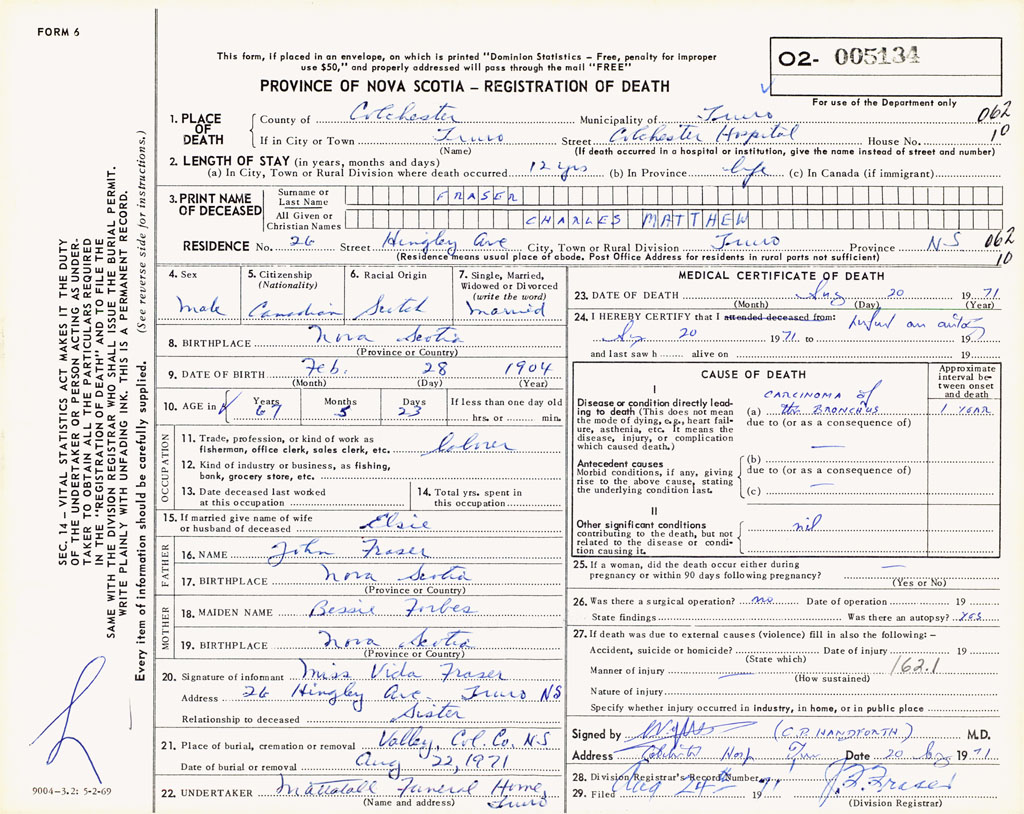 FORM 6
This form, if placed in an envelope, on which is printed "Dominion Statistics – Free, penalty for improper
use $50," and properly addressed will pass through the mail "FREE"
PROVINCE OF NOVA SCOTIA – REGISTRATION OF DEATH
02- 005134
For use of the Department only
1. PLACE OF DEATH County of Colchester Municipality of Truro 062
If in City or Town Truro Street Colchester Hospital House No. 10
(Name) (If death occurred in a hospital or institution, give the name instead of street and number)
2. LENGTH OF STAY (in years, months and days)
(a) In City, Town or Rural Division where death occurred 12 yrs (b) In Province life (c) In Canada (if immigrant)
3. PRINT NAME OF DECEASED Surname or Last Name FRASER
All Given or Christian Names CHARLES MATTHEW
RESIDENCE No. 26 Street Hingley Ave City, Town or Rural Division Truro Province NS 062
(Residence means usual place of abode. Post Office Address for residents in rural parts not sufficient) 10
4. Sex Male
5. Citizenship (Nationality) Canadian
6. Racial Origin Scotch
7. Single, Married, Widowed or Divorced (write the word) Married
8. BIRTHPLACE Nova Scotia
(Province or Country)
9. DATE OF BIRTH Feb. 28 1904
(Month) (Day) (Year)
10. AGE in Years 67 Months 5 Days 23 If less than one day old hrs. or min.
OCCUPATION
11. Trade, profession, or kind of work as fisherman, office clerk, sales clerk, etc. Labourer
12. Kind of industry or business, as fishing, bank, grocery store, etc.
13. Date deceased last worked at this occupation
14. Total yrs. spent in this occupation
15. If married give name of wife or husband of deceased Elsie
FATHER
16. NAME John Fraser
17. BIRTHPLACE Nova Scotia
(Province or Country)
MOTHER
18. MAIDEN NAME Bessie Forbes
19. BIRTHPLACE Nova Scotia
(Province or Country)
20. Signature of informant Miss Vida Fraser
Address 26 Hingley Ave. Truro NS
Relationship to deceased Sister
21. Place of burial, cremation or removal Valley, Col. Co. N.S
Date of burial or removal Aug 22, 1971
22. UNDERTAKER Mattatall Funeral Home, Truro
(Name and address)
MEDICAL CERTIFICATE OF DEATH
23. DATE OF DEATH Aug 20 1971
(Month) (Day) (Year)
24. I HEREBY CERTIFY that I attended deceased from: an autopsy
Aug 20 1971 to 19
and last saw h alive on 19
CAUSE OF DEATH
Approximate interval between onset and death
I
Disease or condition directly leading to death (This does not mean the mode of dying, e.g., heart failure, asthenia, etc. It means the disease, injury, or complication which caused death.)
CARCINOMA of
(a) the BRONCHUS 1 YEAR
due to (or as a consequence of)
Antecedent causes
Morbid conditions, if any, giving rise to the above cause, stating the underlying condition last.
(b)
due to (or as a consequence of)
(c)
II
Other significant conditions
contributing to the death, but not related to the disease or condition causing it. nil
25. If a woman, did the death occur either during pregnancy or within 90 days following pregnancy?
(Yes or No)
26. Was there a surgical operation? no Date of operation 19
State findings Was there an autopsy? YES
27. If death was due to external causes (violence) fill in also the following: –
Accident, suicide or homicide? Date of injury 19
(State which)
Manner of injury 162.1
(How sustained)
Nature of injury
Specify whether injury occurred in industry, in home, or in public place
Signed by (C.P. HANDFORTH) M.D.
Address Hosp Date 20 Aug 1971
28. Division Registrar's Record Number
29. Filed Aug 24 1971 Fraser
(Division Registrar)
SEC. 14 – VITAL STATISTICS ACT MAKES IT THE DUTY
OF THE UNDERTAKER OR PERSON ACTING AS UNDER-
TAKER TO OBTAIN ALL THE PARTICULARS REQUIRED
IN THE "REGISTRATION OF DEATH" AND TO FILE THE
SAME WITH THE DIVISION REGISTRAR WHO SHALL ISSUE THE BURIAL PERMIT.
WRITE PLAINLY WITH UNFADING INK. THIS IS A PERMANENT RECORD.
Every item of information should be carefully supplied. (See reverse side for instructions.)
9004-3.2: 5-2-69